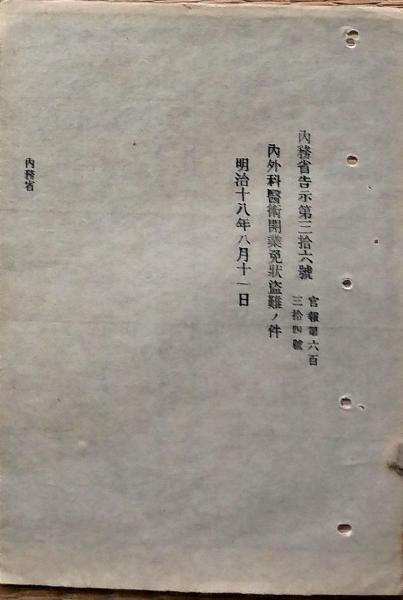 內務省告示第三拾六號
官報第六百
三拾四號
內外科醫術開業免狀盜難ノ件
明治十八年八月十一日
內務省